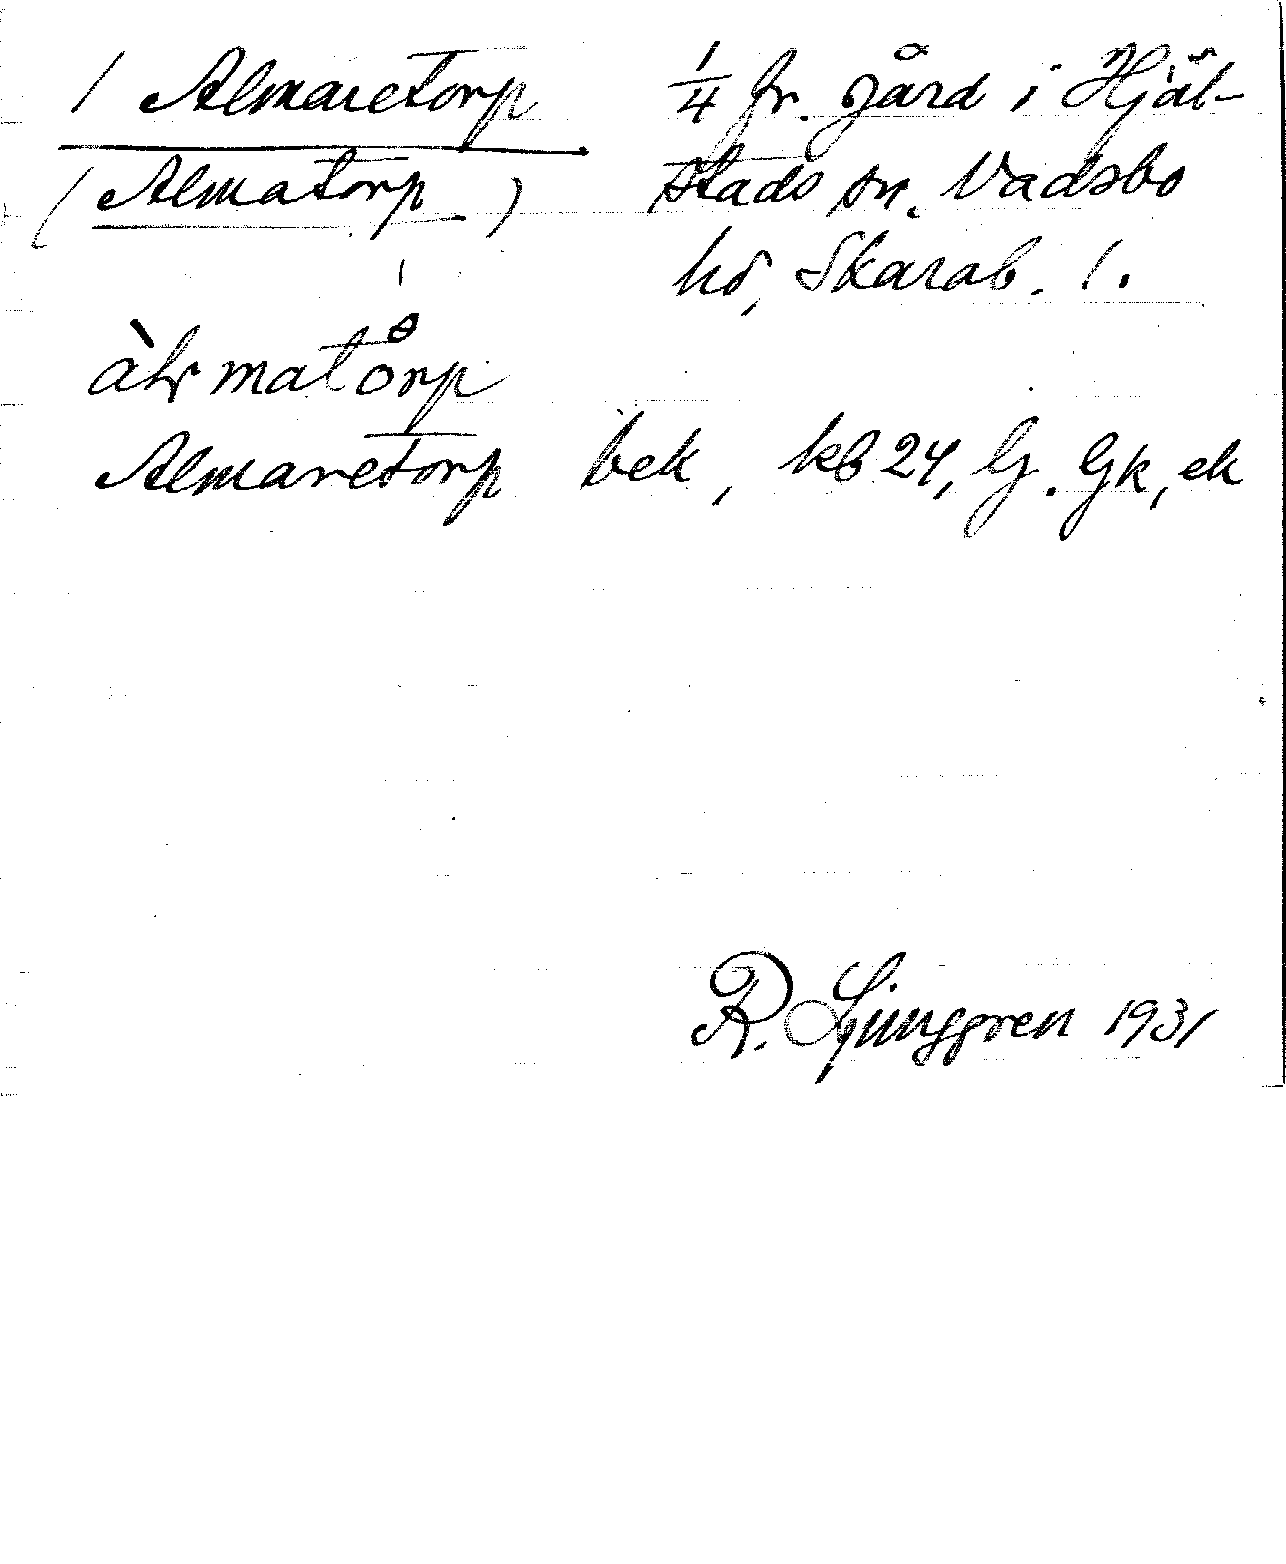 / Almaretorp 1/4 fr. gård i Hjäl-
(Almatorp) stads sn. Vadsbo
hd, Skarab. l.
Almaretorp bek, kb 24, G. Gk, ek
R. Ljunggren 1931